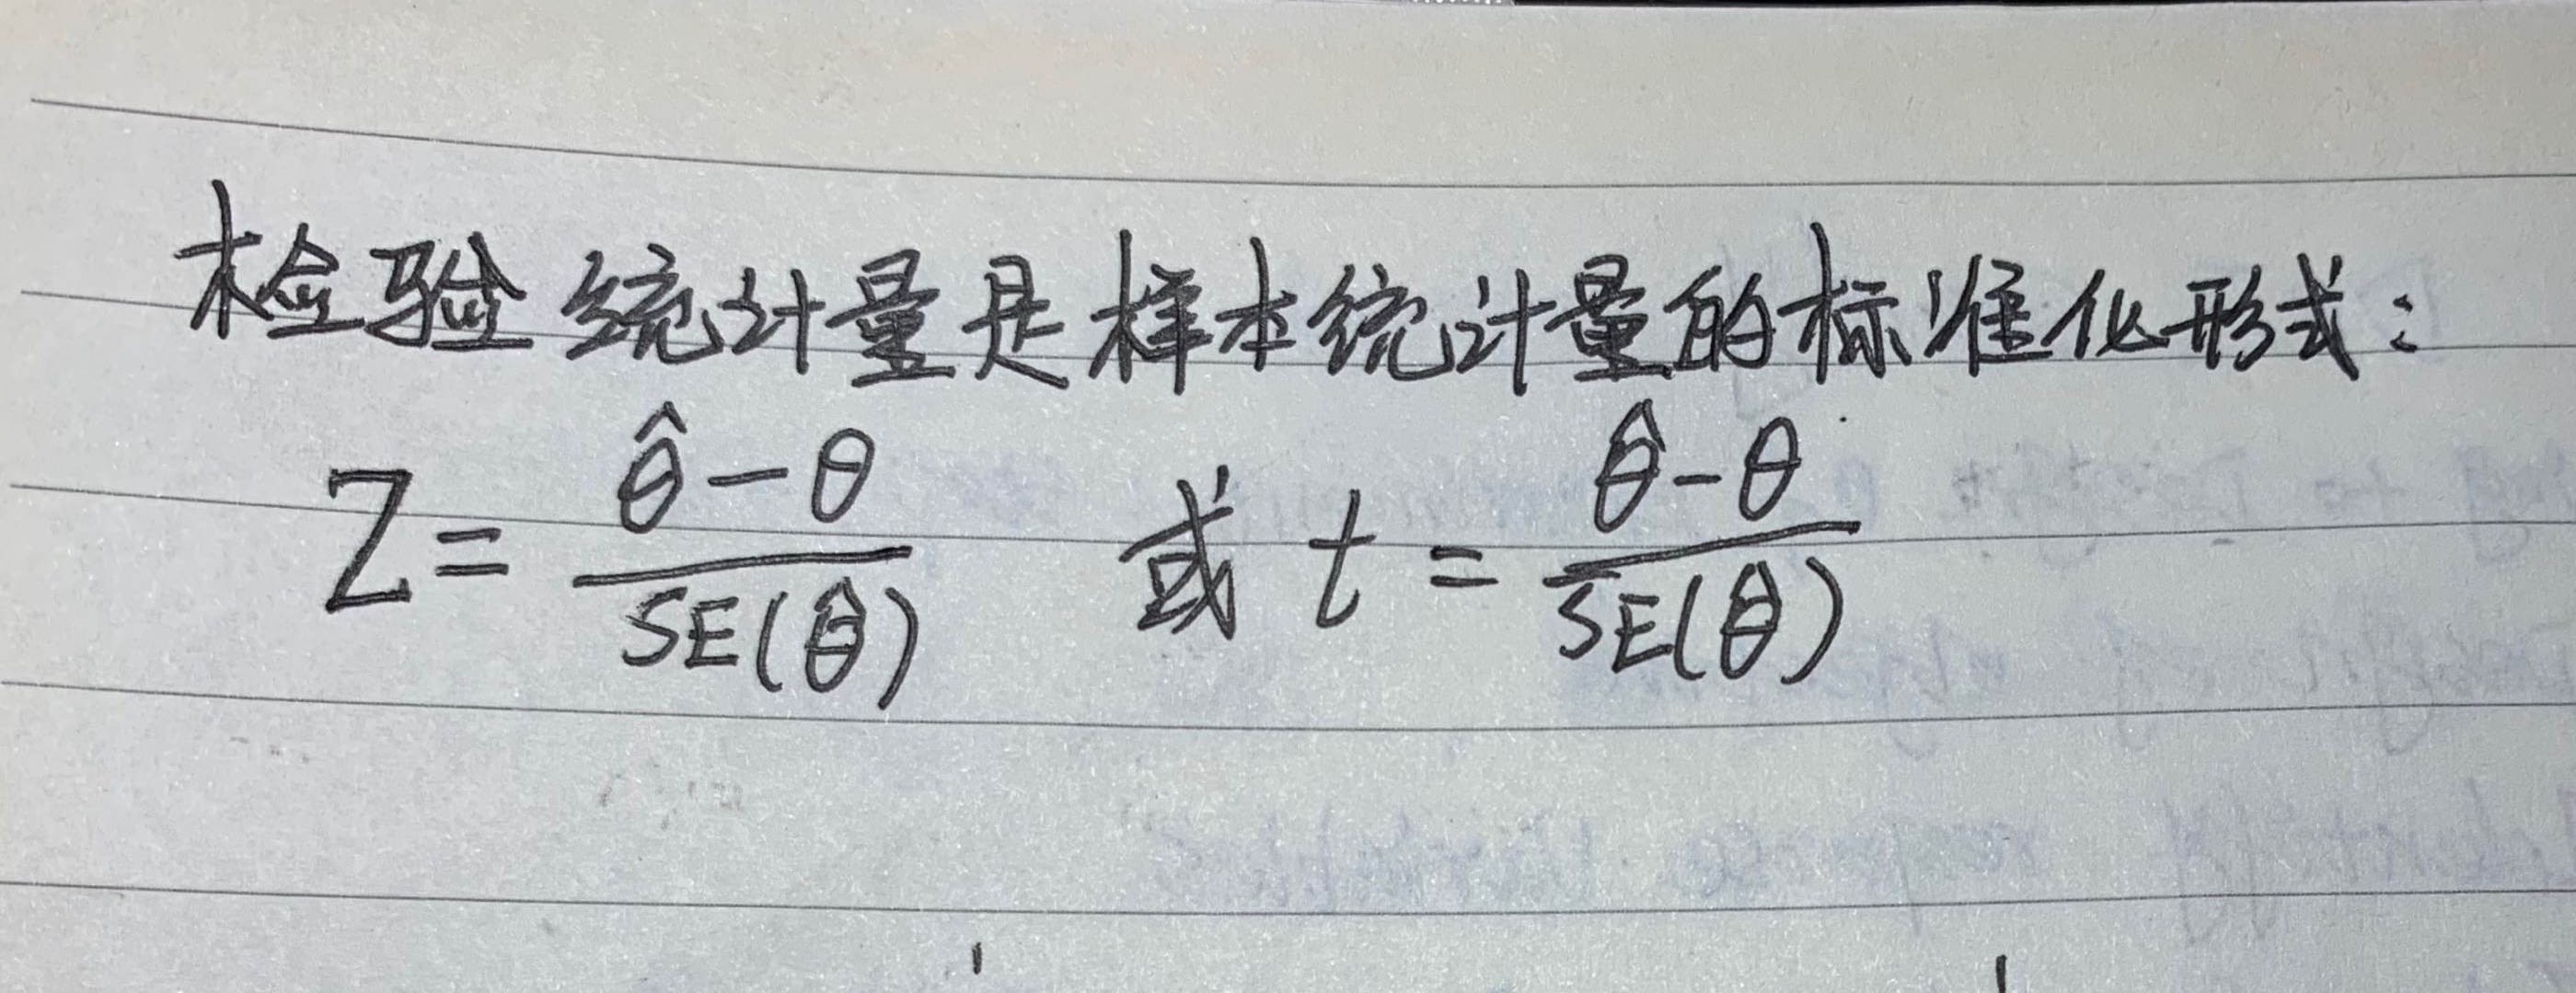 检验统计量是样本统计量的标准化形式：
Z = \frac{\hat{θ} - θ}{SE(\hat{θ})} 或 t = \frac{\hat{θ} - θ}{SE(\hat{θ})}